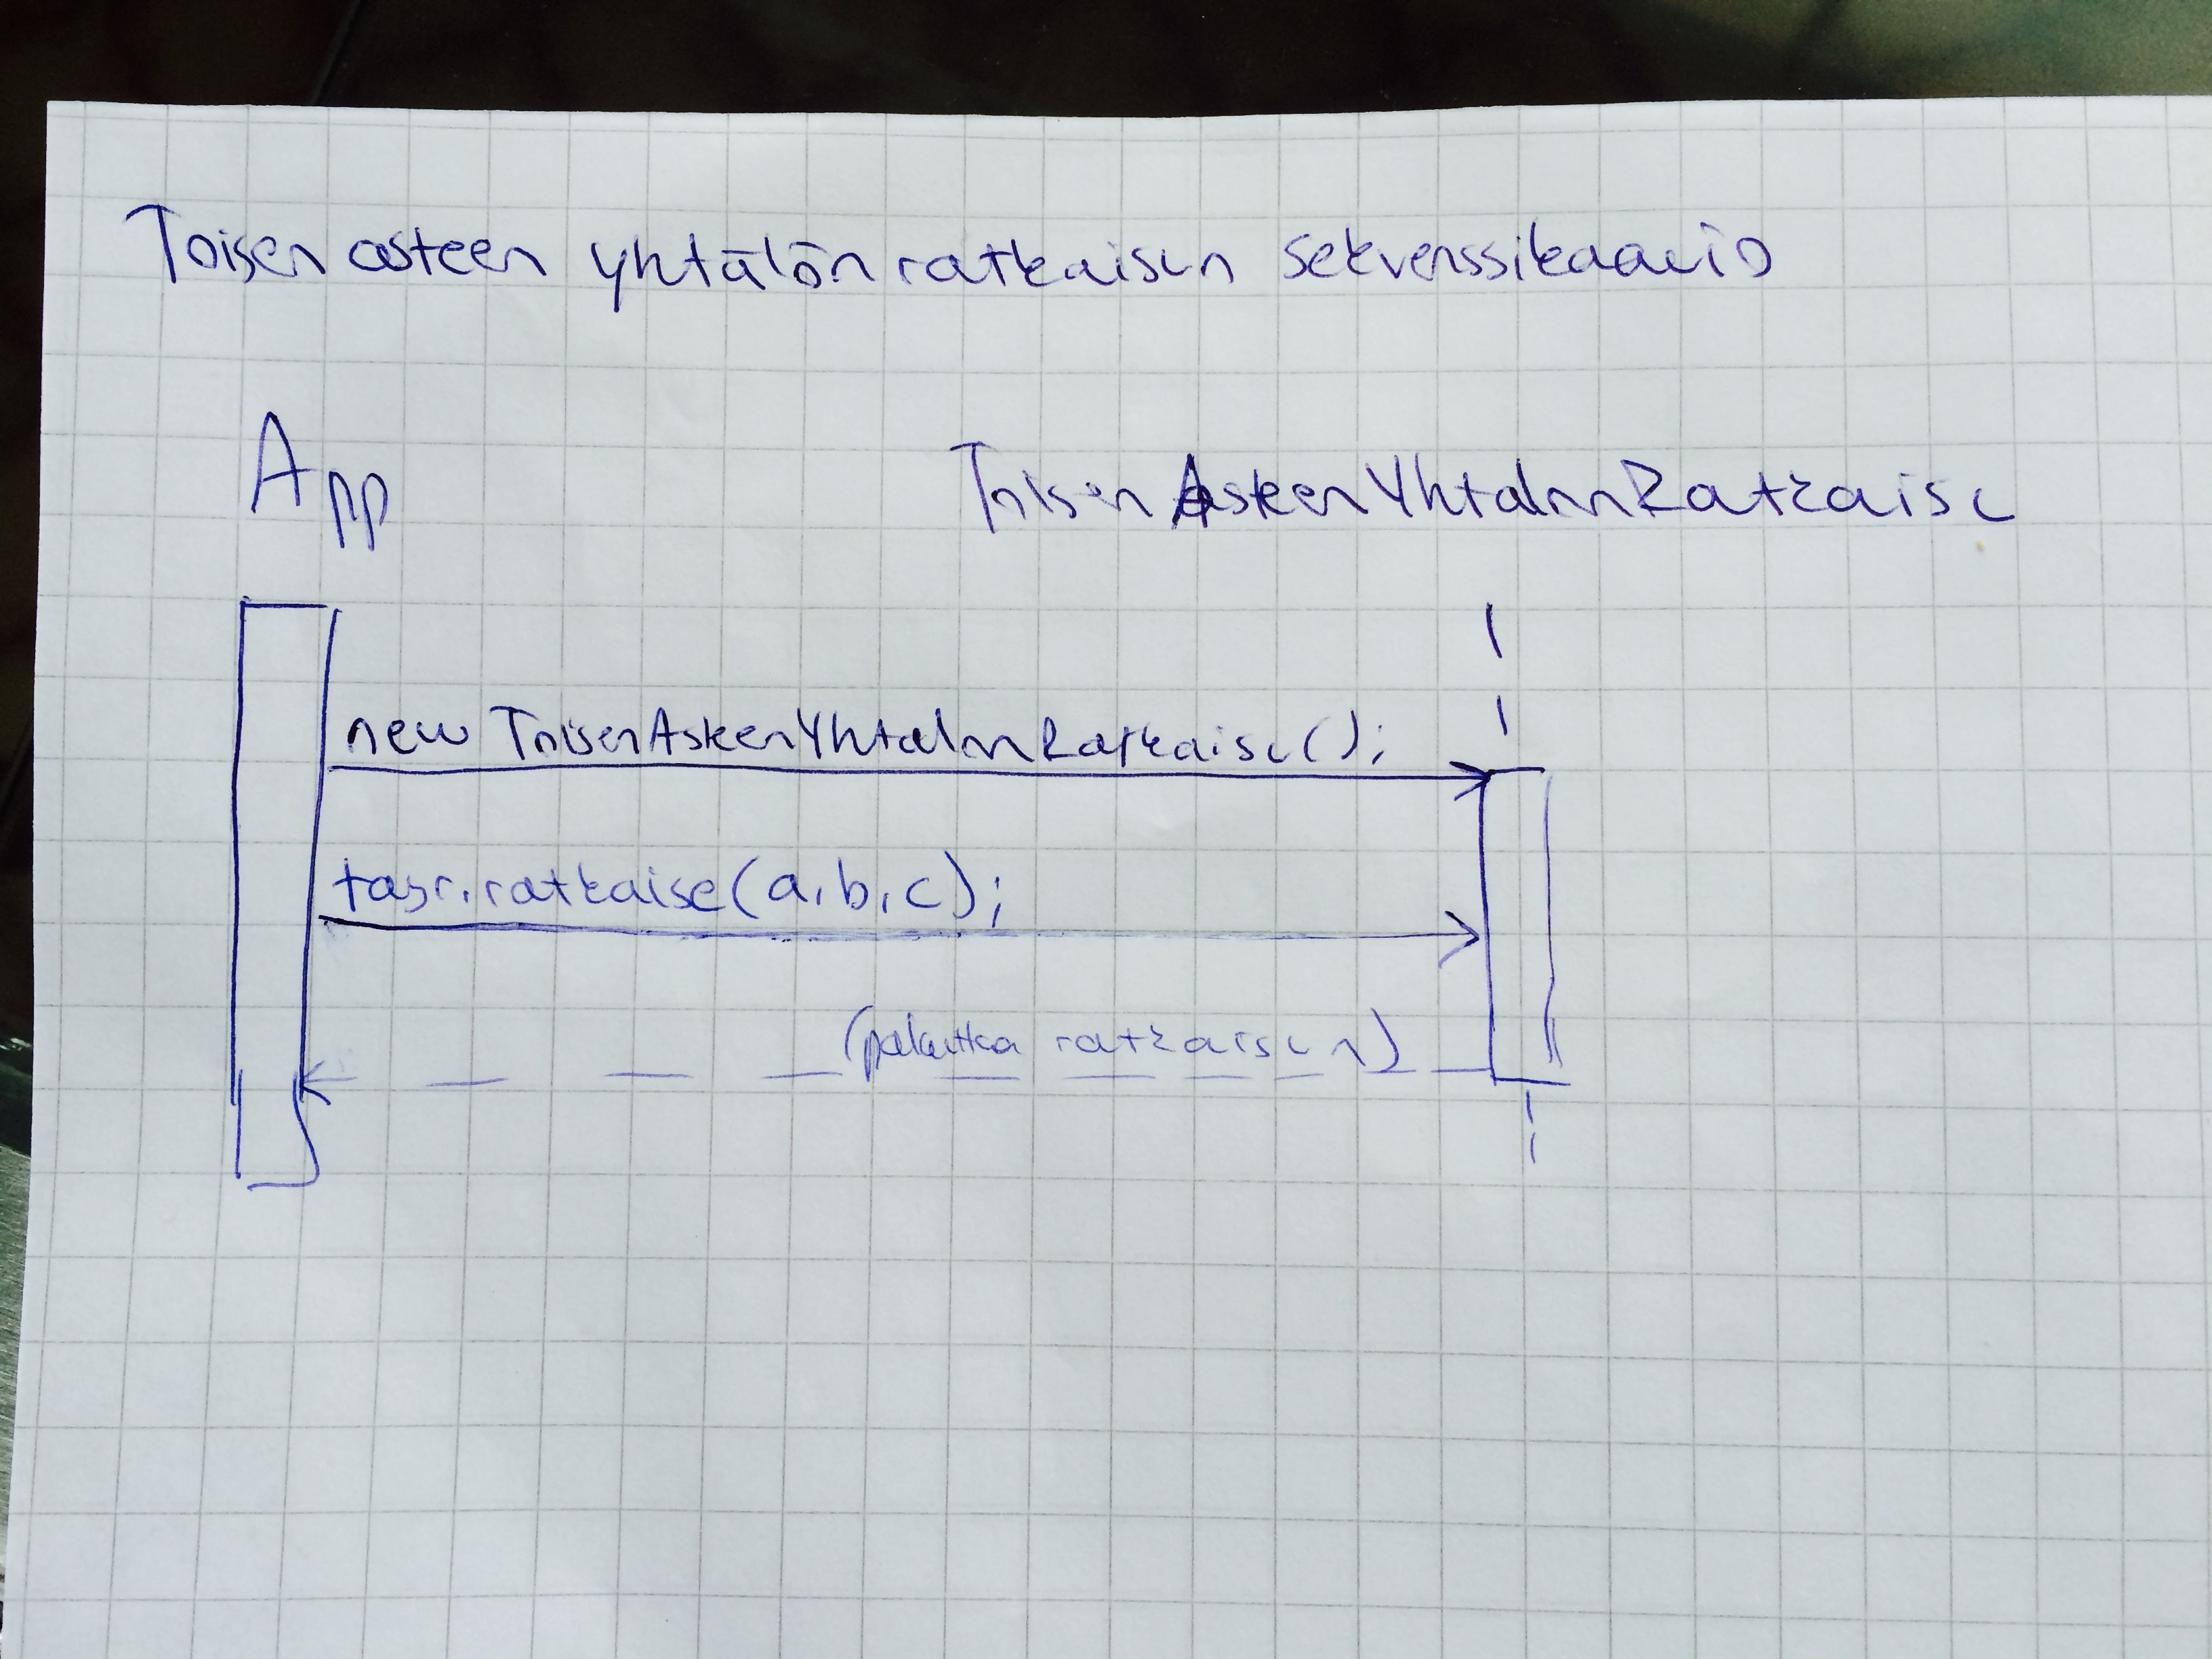 Toisen asteen yhtälön ratkaisun sekvenssikaavio
App
ToisenAsteenYhtalonRatkaisu
new ToisenAsteenYhtalonRatkaisu();
tayr.ratkaise(a,b,c);
(palauttaa ratkaisun)